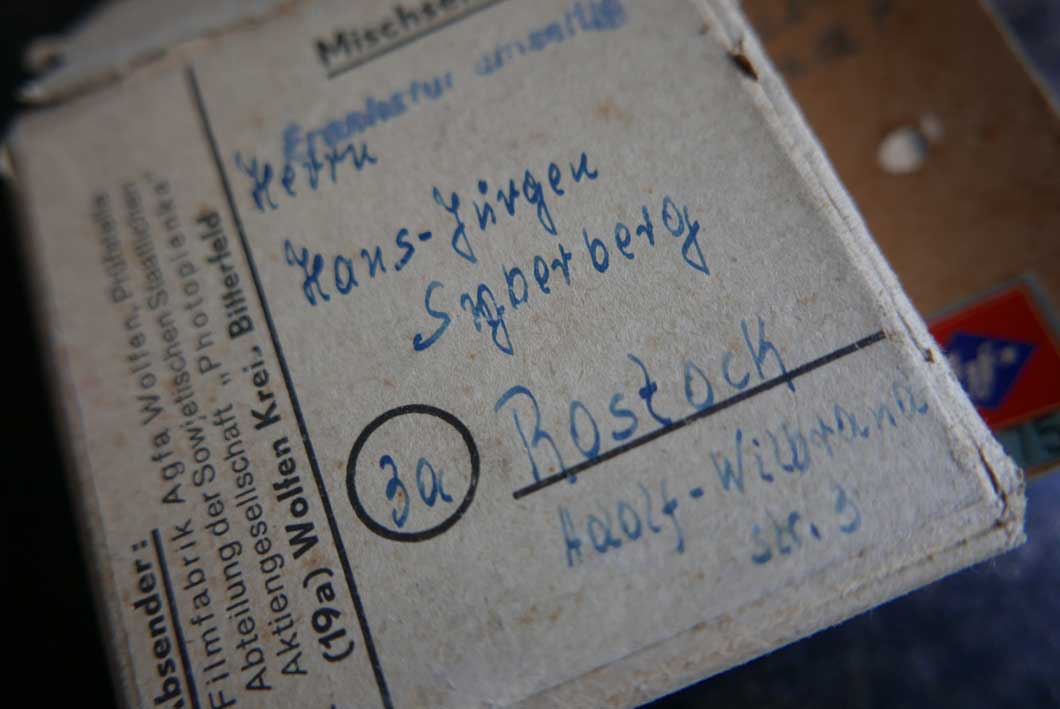 Mischsen
Herrn
Hans-Jürgen
Syberberg
3a Rostock
Adolf-Wilbrand
str. 3
Absender:
Filmfabrik Agfa Wolfen, Prüfstelle
Abteilung der Sowjetischen Staatlichen
Aktiengesellschaft "Photoplenka"
(19a) Wolfen Krei. Bitterfeld